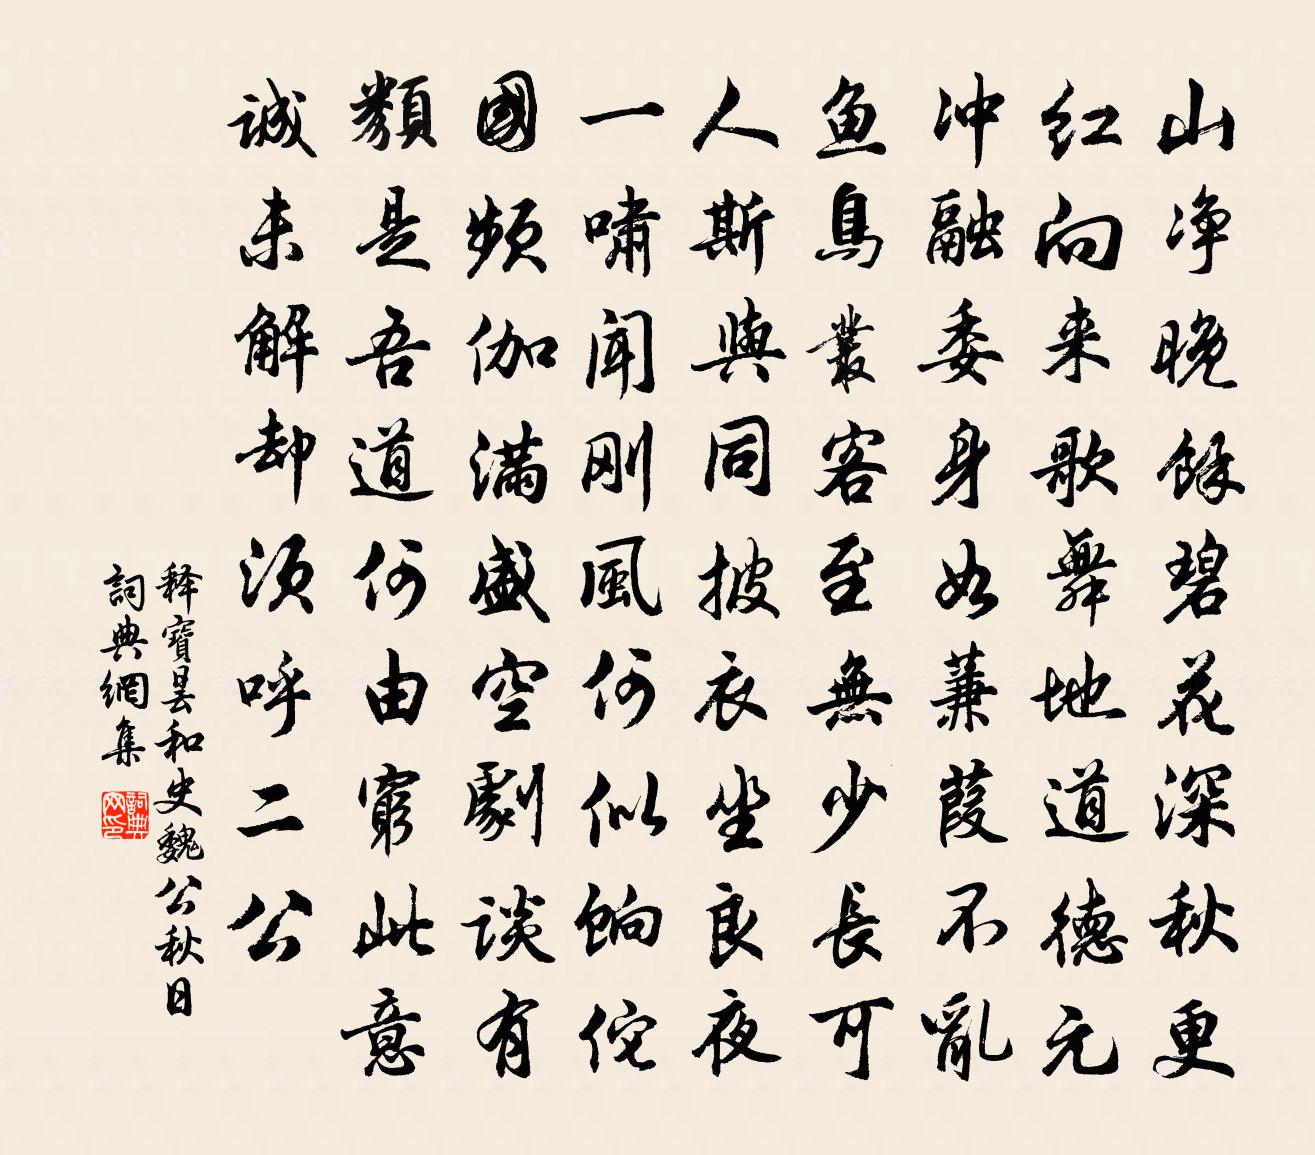 山净晚餘碧花深秋更
红向来歌舞地道德元
冲融委身如蒹葭不亂
鱼鳥叢客至無少長可
人斯與同披衣坐良夜
一嘯聞刚風何似餉佗
國頻伽满盛空劇谈有
類是吾道何由窮此意
诚未解却须呼二公
释寶曇和史魏公秋日
詞典網集
詞典网印